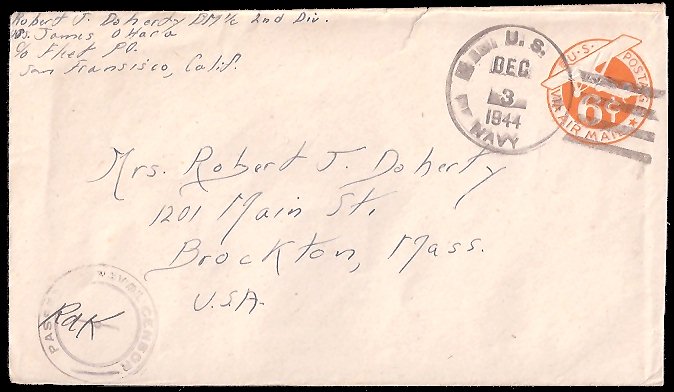 Robert J. Doherty EM 1/c 2nd Div.
U.S.S. James O'Hara
c/o Fleet P.O.
San Francisco, Calif.
U.S.
DEC
3
1944
NAVY
U.S. POSTAGE
6¢
VIA AIR MAIL
Mrs. Robert J. Doherty
1201 Main St.
Brockton, Mass.
U.S.A.
PASSED NAVAL CENSOR
RdK